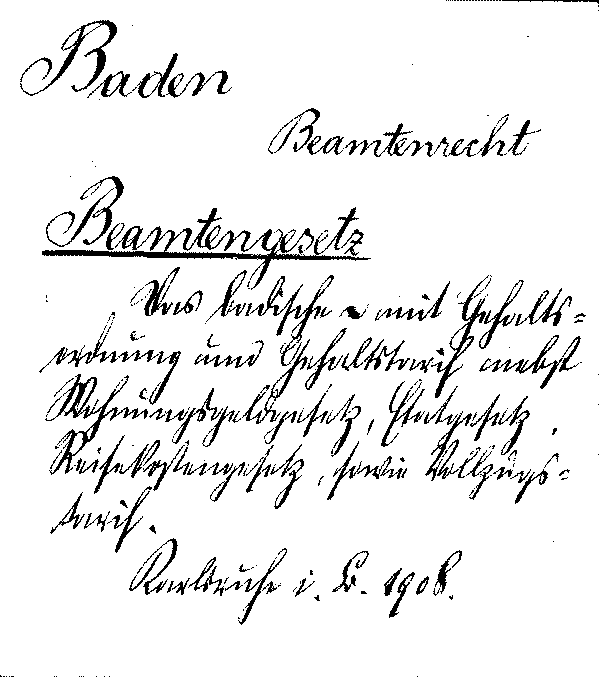 Baden
Beamtenrecht
Beamtengesetz
Das badische ~ mit Gehalts=
ordnung und Gehaltstarif nebst
Wohnungsgeldgesetz, Etatgesetz,
Reisekostengesetz, sowie Vollzugs=
tarif.
Karlsruhe i. B. 1908.